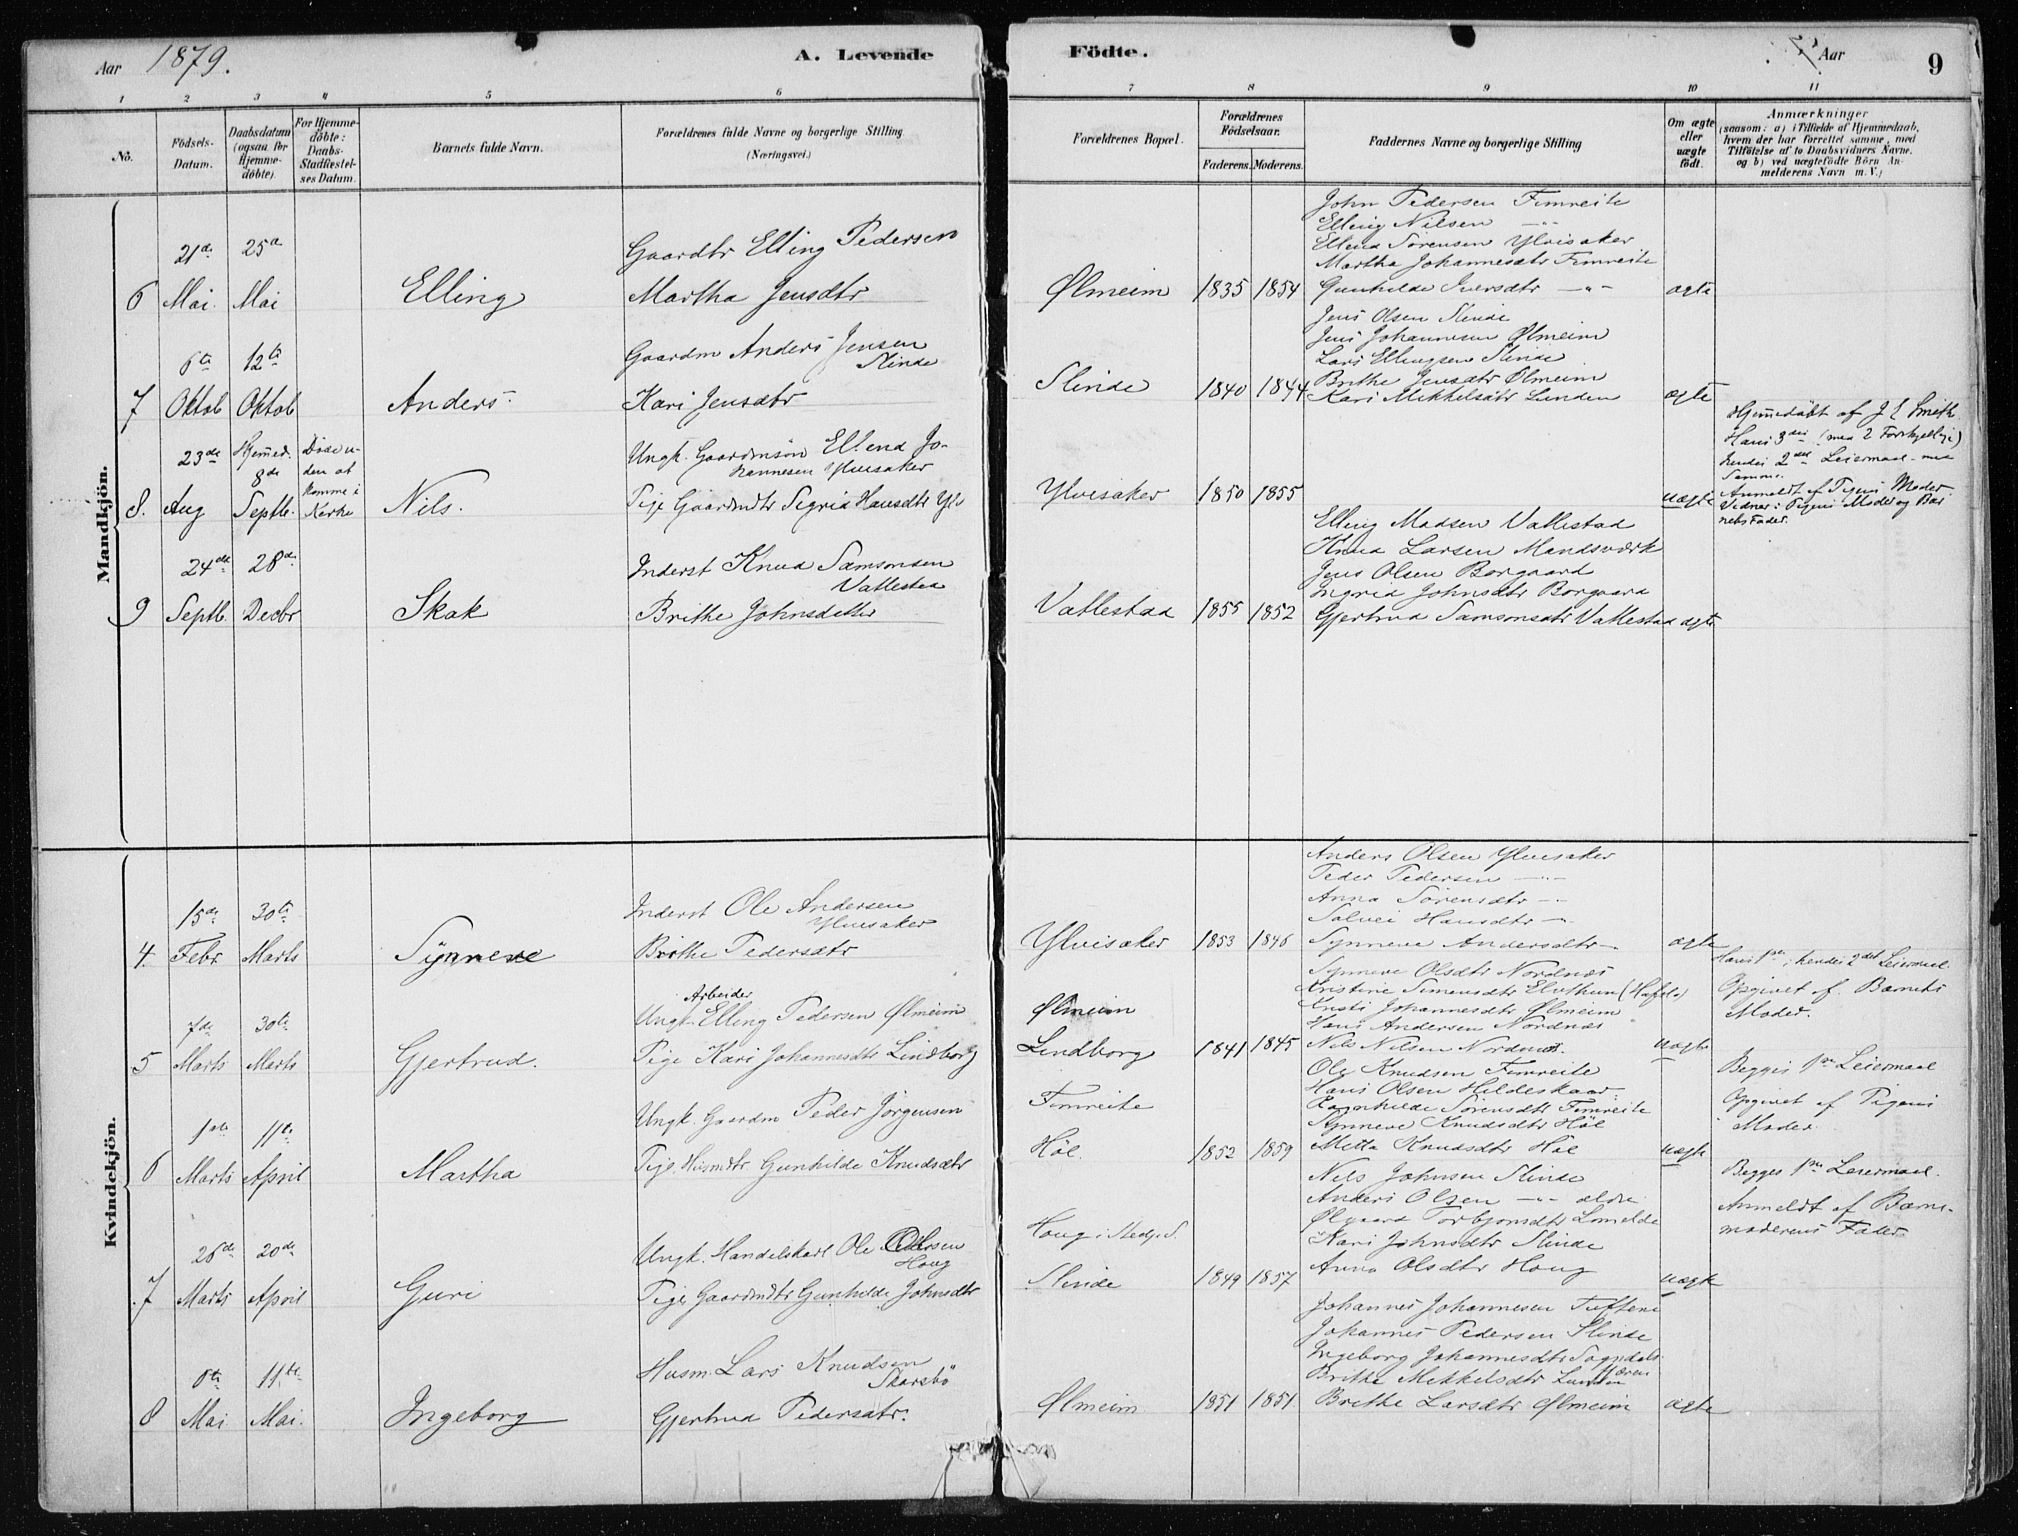 Aar 1879.
A. Levende Födte.
Aar
9
1 2 3 4 5 6 7 8 9 10 11
No.
Födsels-Datum.
Daabsdatum (ogsaa for Hjemme-döbte).
For Hjemme-döbte: Daabs-Stadfæstel-ses Datum.
Barnets fulde Navn.
Forældrenes fulde Navne og borgerlige Stilling (Næringsvei.)
Forældrenes Bopæl.
Forældrenes Födselsaar.
Faderens. Moderens.
Faddernes Navne og borgerlige Stilling
Om ægte eller uægte födt.
Anmærkninger
(saasom: a) i Tilfælde af Hjemmedaab,
hvem der har forrettet samme, med
Tilföielse af to Daabsvidners Navne.
og b) ved uægtefödte Börn An-
melderens Navn m. V.)
Mandkjön.
6 21de Mai. 25de Mai
Elling
Gaardbr Elling Pedersen
Martha Jensdtr
Ølmeim 1835 1854
John Pedersen Fimreite
Elling Nilsen —"—
Ellend Sørensen Ylvisaker
Martha Johannesdtr Fimreite
Gunhilde Iversdtr —"—
ægte
7 6te Oktob 12te Oktob
Anders
Gaardm Anders Jensen
Slinde
Kari Jensdtr
Slinde 1840 1844
Jens Olsen Slinde
Jens Johannesen Ølmeim
Lars Ellingsen Slinde
Brithe Jensdtr Ølmeim
Kari Mikkelsdtr Lunden
ægte
8. 23de Aug Hjemmed. 8de Septb.
Døde u-
den at
komme i
Kirke
Nils.
Ungk. Gaardmsøn Ellend Jo-
hannesen Ylvisaker
Pige Gaardmdtr Sigrid Hansdtr Ylv
Ylvisaker 1850 1855
uægte
Hjemmedøbt af J E Smith
Hans 3die (med 2 Forskjellige)
hendes 2det Leiermaal med
Samme.
Anmeldt af Pigens Moder
Vidner: Pigens Moder og Bar
nets Fader.
9 24de Septb. 28de Decbr
Skak
Inderst Knud Samsonsen
Vallestad
Brithe Johnsdatter
Vallestad 1855 1852
Elling Madsen Vallestad
Knud Larsen Mundsværk
Jens Olsen Borgaard
Ingrid Johnsdtr Borgaard
Gjertrud Samsonsdtr Vallestad
ægte
Kvindekjön.
4. 15de Febr. 30te Marts
Synneve
Inderst Ole Andersen
Ylvisaker
Brithe Pedersdtr
Ylvisaker 1853 1846
Anders Olsen Ylvisaker
Peder Pedersen —"—
Anna Sørensdtr —"—
Solvei Hansdtr —"—
Synneve Andersdtr —
ægte
5 7de Marts 30te Marts
Gjertrud.
Arbeider
Ungk. Elling Pedersen Ølmeim
Pige Kari Johannesdtr Lindborg
Ølmeim
Lindborg 1841 1845
Synneve Olsdtr Nordnæs
Kristine Simensdtr Elvthun (Hafslo)
Kristi Johannesdtr Ølmeim
Hans Andersen Nordnæs
Nils Nilsen Nordnæs.
uægte
Hans 1ste, hendes 2det Leiermaal.
Opgivet af Barnets
Moder.
6 1ste Marts 11te April
Martha
Ungk. Gaardm Peder Jørgensen
Pige, Husmdtr Gunhilde Knudsdtr
Fimreite
Høl. 1852 1859
Ole Knudsen Fimreite
Hans Olsen Hildeskaar
Ragnhilde Sørensdtr Fimreite
Synneve Knudsdtr Høl
Metta Knudsdtr Høl
uægte
Begges 1ste Leiermaal
Opgivet af Pigens
Moder.
7 26de Marts 20de April
Guri
Ungk. Handelskarl Ole Olsen
Houg
Pige Gaardmdtr Gunhilde Johnsdtr
Houg i Stedje S.
Slinde 1849 1857
Nils Johnsen Slinde
Anders Olsen —"— ældre
Ølgaard Torbjønsdtr Lomelde
Kari Johnsdtr Slinde
Anna Olsdtr Houg
uægte
Begges 1ste Leiermaal.
Anmeldt af Barne-
moderens Fader
8 6te Mai 11te Mai.
Ingeborg
Husm. Lars Knudsen
Skarsbö
Gjertrud Pedersdtr.
Ølmeim 1851 1851
Johannes Johannesen Tuftene
Johannes Pedersen Slinde
Ingeborg Johannesdtr Sogndals-
fjæren
Brithe Mikkelsdtr Lunden
Brithe Larsdtr Ølmeim
ægte